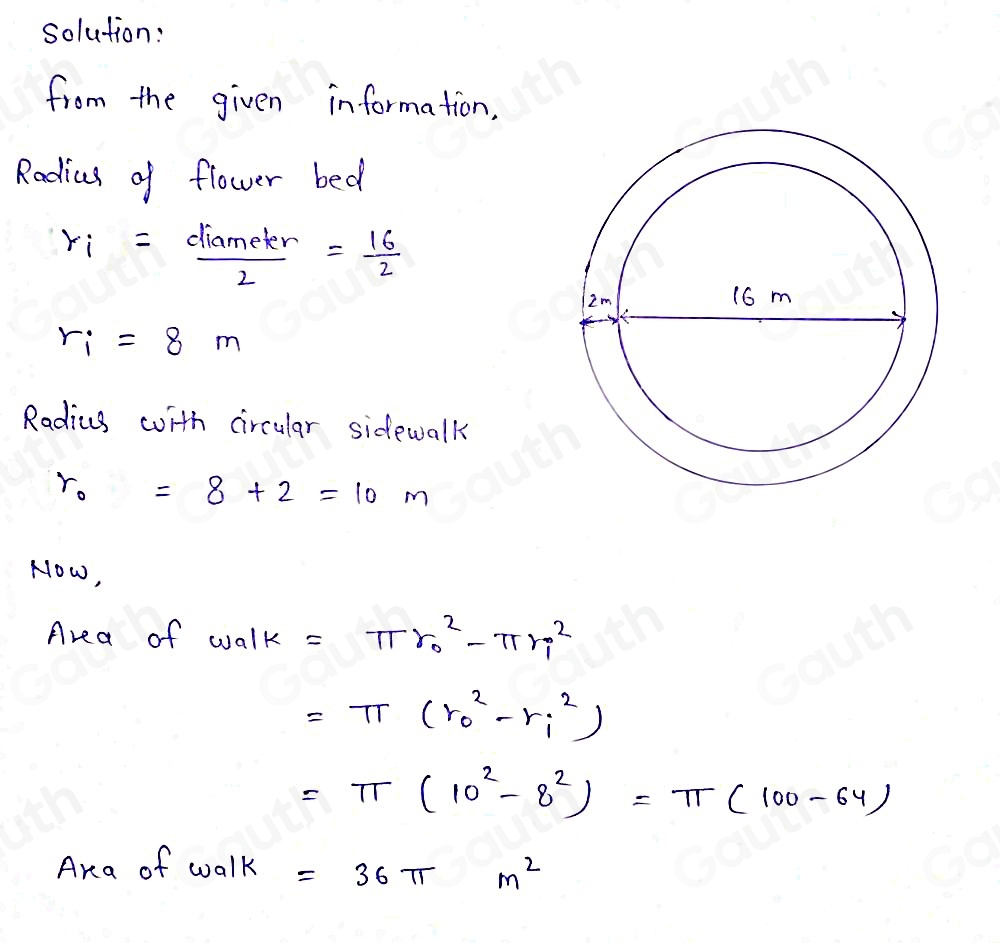 Solution:
from the given information,
Radius of flower bed
ri = diameter/2 = 16/2
ri = 8 m
2m 16 m
Radius with circular sidewalk
ro = 8 + 2 = 10 m
Now,
Area of walk = πro² - πri²
= π (ro² - ri²)
= π (10² - 8²) = π (100 - 64)
Area of walk = 36 π m²
Gauth